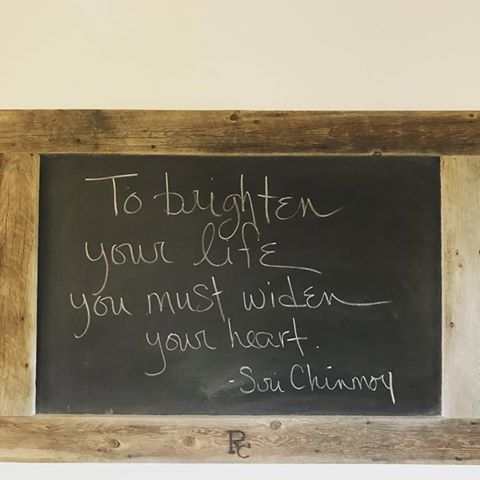 To brighten
your life
you must widen
your heart.
-Sri Chinmoy
PC